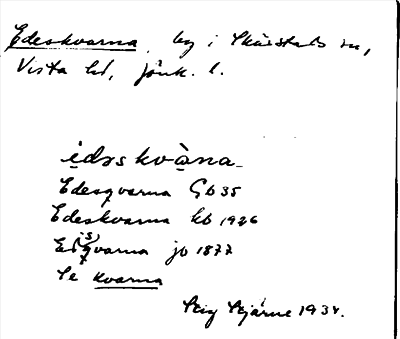 Edeskvarna, by i Skärstads sn,
Vista hd, jönk. l.
idəskvàna
Edesqvarna Gb 35
Edeskvarna kb 1926
Edisqvarna jb 1877
Se kvarna
Stig Stjärne 1934.